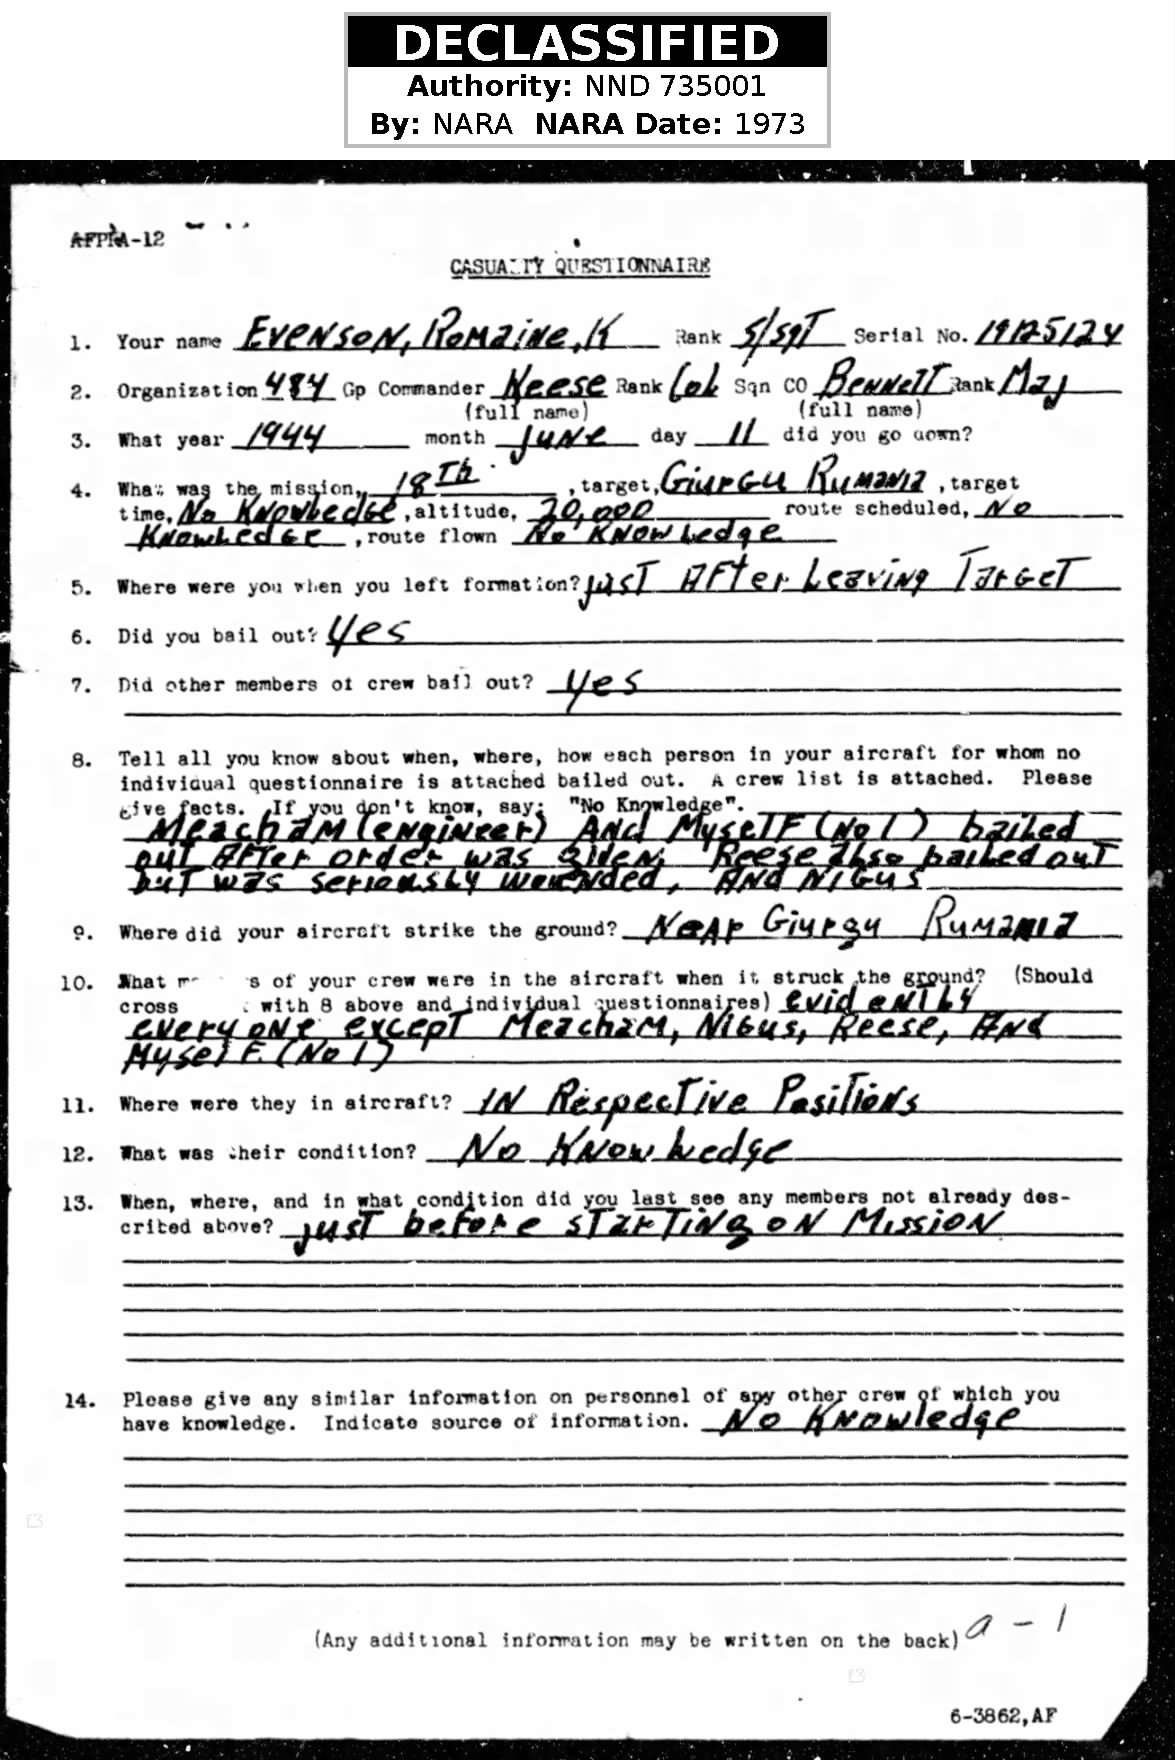 DECLASSIFIED
Authority: NND 735001
By: NARA NARA Date: 1973
AFPPA-12
CASUALTY QUESTIONNAIRE
1. Your name Evenson, Romaine, K Rank S/Sgt Serial No. 19125124
2. Organization 484 Gp Commander Keese Rank Col Sqn CO Bennett Rank Maj
(full name) (full name)
3. What year 1944 month June day 11 did you go down?
4. What was the mission, 18Th , target, Giurgu Rumania , target
time, No Knowledge , altitude, 20,000 route scheduled, No
Knowledge , route flown No Knowledge
5. Where were you when you left formation? just After Leaving Target
6. Did you bail out? Yes
7. Did other members of crew bail out? yes
8. Tell all you know about when, where, how each person in your aircraft for whom no
individual questionnaire is attached bailed out. A crew list is attached. Please
give facts. If you don't know, say: "No Knowledge".
Meacham (engineer) And Myself (No 1) bailed
out After order was given; Reese also bailed out
but was seriously wounded, And Nigus
9. Where did your aircraft strike the ground? Near Giurgu Rumania
10. What m s of your crew were in the aircraft when it struck the ground? (Should
cross with 8 above and individual questionnaires) evidently
everyone except Meacham, Nigus, Reese, And
Myself. (No 1)
11. Where were they in aircraft? IN Respective Positions
12. What was their condition? No Knowledge
13. When, where, and in what condition did you last see any members not already des-
cribed above? just before starting on Mission
14. Please give any similar information on personnel of any other crew of which you
have knowledge. Indicate source of information. No Knowledge
(Any additional information may be written on the back) a - 1
6-3862,AF